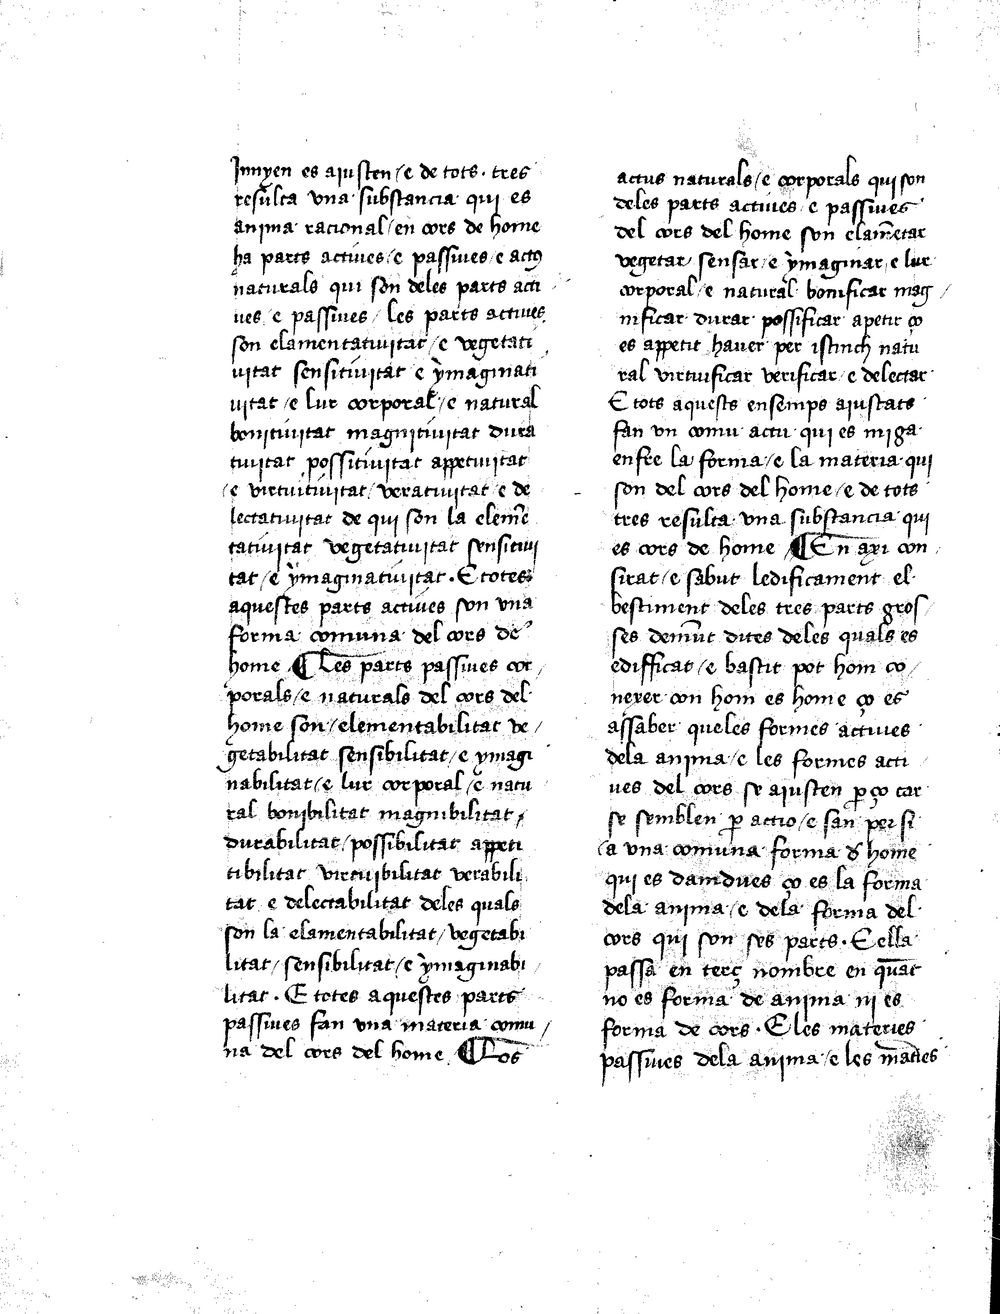 junyen es aiusten / e de tots · tres
resulta vna substancia qui es
anima racional / en cors de home
ha parts actiues / e passiues / e actus
naturals qui son deles parts acti
ues / e passiues / les parts actiues
son elamentatiuitat / e vegetati
uitat sensitiuitat e ymaginati
uitat / e lur corporal / e natural
bonitiuitat magnitiuitat dura
tiuitat possitiuitat appetiuitat
/ e virtuitiuitat / veratiuitat / e de
lectatiuitat de qui son la eleme
tatiuitat vegetatiuitat sensitiui
tat / e ymaginatiuitat · E totes
aquestes parts actiues son vna
forma comuna del cors de
home ¶ Les parts passiues cor /
porals / e naturals del cors del
home son / elementabilitat ve /
getabilitat sensibilitat / e ymagi
nabilitat / e lur corporal / e natu
ral bonibilitat magnibilitat /
durabilitat / possibilitat appeti
tibilitat virtuibilitat verabili
tat e delectabilitat deles quals
son la elamentabilitat / vegetabi
litat / sensibilitat / e ymaginabi /
litat · E totes aquestes parts
passiues fan vna materia comu /
na del cors del home ¶ Los
actus naturals / e corporals qui son
deles parts actiues e passiues
del cors del home son elametar
vegetar / sensar / e ymaginar / e lur
corporal / e natural bonificar mag /
nificar durar possificar apetir ço
es appetit hauer per istinch natu
ral virtuificar verificar / e delectar
E tots aquests ensemps aiustats
fan vn comu actu qui es miga
enfre la forma / e la materia qui
son del cors del home / e de tots
tres resulta vna substancia qui
es cors de home ¶ En axi con
sirat / e sabut ledificament el
bestiment deles tres parts gros /
ses demut dites deles quals es
edifficat / e bastit pot hom co /
nexer con hom es home ço es
assaber queles formes actiues
dela anima / e les formes acti
ues del cors se aiusten p ço car
se semblen p actio / e fan per si
/ a vna comuna forma d home
qui es damdues ço es la forma
dela anima / e dela forma del
cors qui son ses parts · E ella
passa en terç nombre en quat
no es forma de anima ni es
forma de cors · E les materies
passiues dela anima / e les maties